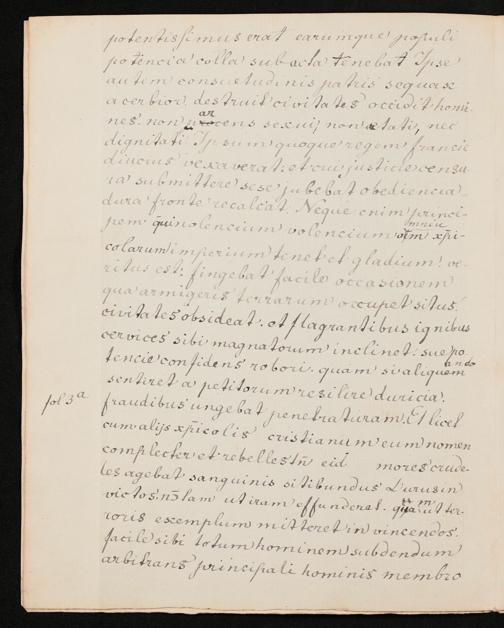 potentissimus erat earumque populi
potencia colla subacta tenebat Ipse
autem consuetudinis patris sequax
acerbior, destruit civitates occidit homi-
nes. non parcens sexuij non etati, nec
dignitati. Ipsum quoque regem francie
diucius vexaverat; et cui justicie censu-
ra submittere sese jubebat obediencia
dura fronte recalcat. Neque enim princi-
pem qui nolencium volencium omniu xp̄i-
colarum imperium tenet et gladium! ve-
ritus est; fingebat facile occasionem
qua armigeris terrarum occupet situs,
civitates obsideat. et flagrantibus ignibus
cervices sibi magnatorum inclinet: sue po
tencie confidens robori. quam si aliquando
sentiret a petitorum resilire duricia.
fol 3ª fraudibus ungebat penetraturam. Et licet
cum alijs xp̄icolis cristianum eum nomen
complecteret rebelles tn̄ eid mores crude-
les agebat sanguinis sitibundus Durus in
victos. nō tam ut iram effunderat. ut ter-
roris exemplum mitteret in vincendos.
facile sibi totum hominem subdendum
arbitrans principali hominis membro